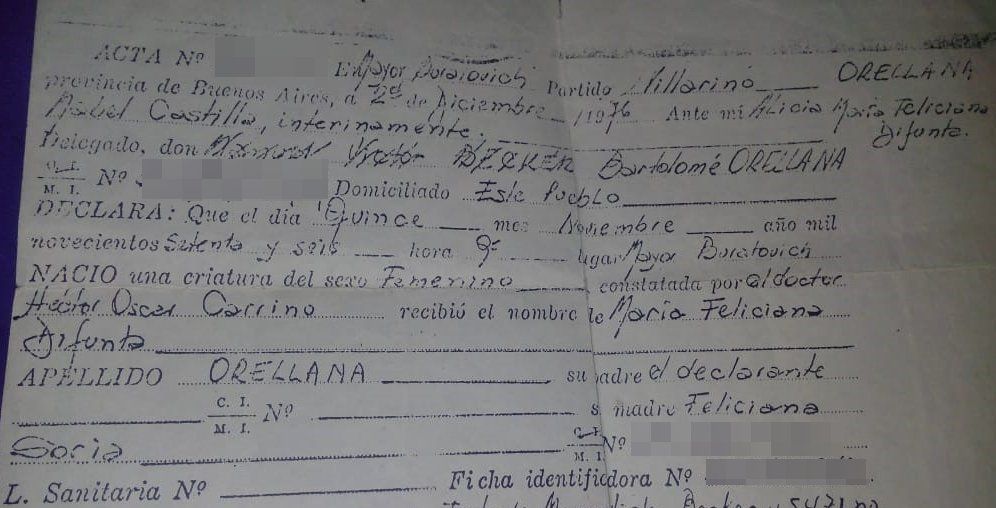 ORELLANA
María Feliciana
Difunta.
ACTA Nº
En Mayor Buratovich Partido Villarino
provincia de Buenos Aires, a 2 de Diciembre 1976 Ante mí Alicia
Mabel Castillo, interinamente.
Delegado, don Bartolomé ORELLANA
C. I.
M. I. Nº Domiciliado Este Pueblo
DECLARA: Que el día Quince mes Noviembre año mil
novecientos Setenta y seis hora 9 lugar Mayor Buratovich
NACIO una criatura del sexo Femenino constatada por el doctor
Héctor Oscar Carrino recibió el nombre de María Feliciana
Difunta
APELLIDO ORELLANA su padre el declarante
C. I.
M. I. Nº s madre Feliciana
Soria C. I.
M. I. Nº
L. Sanitaria Nº Ficha identificadora Nº